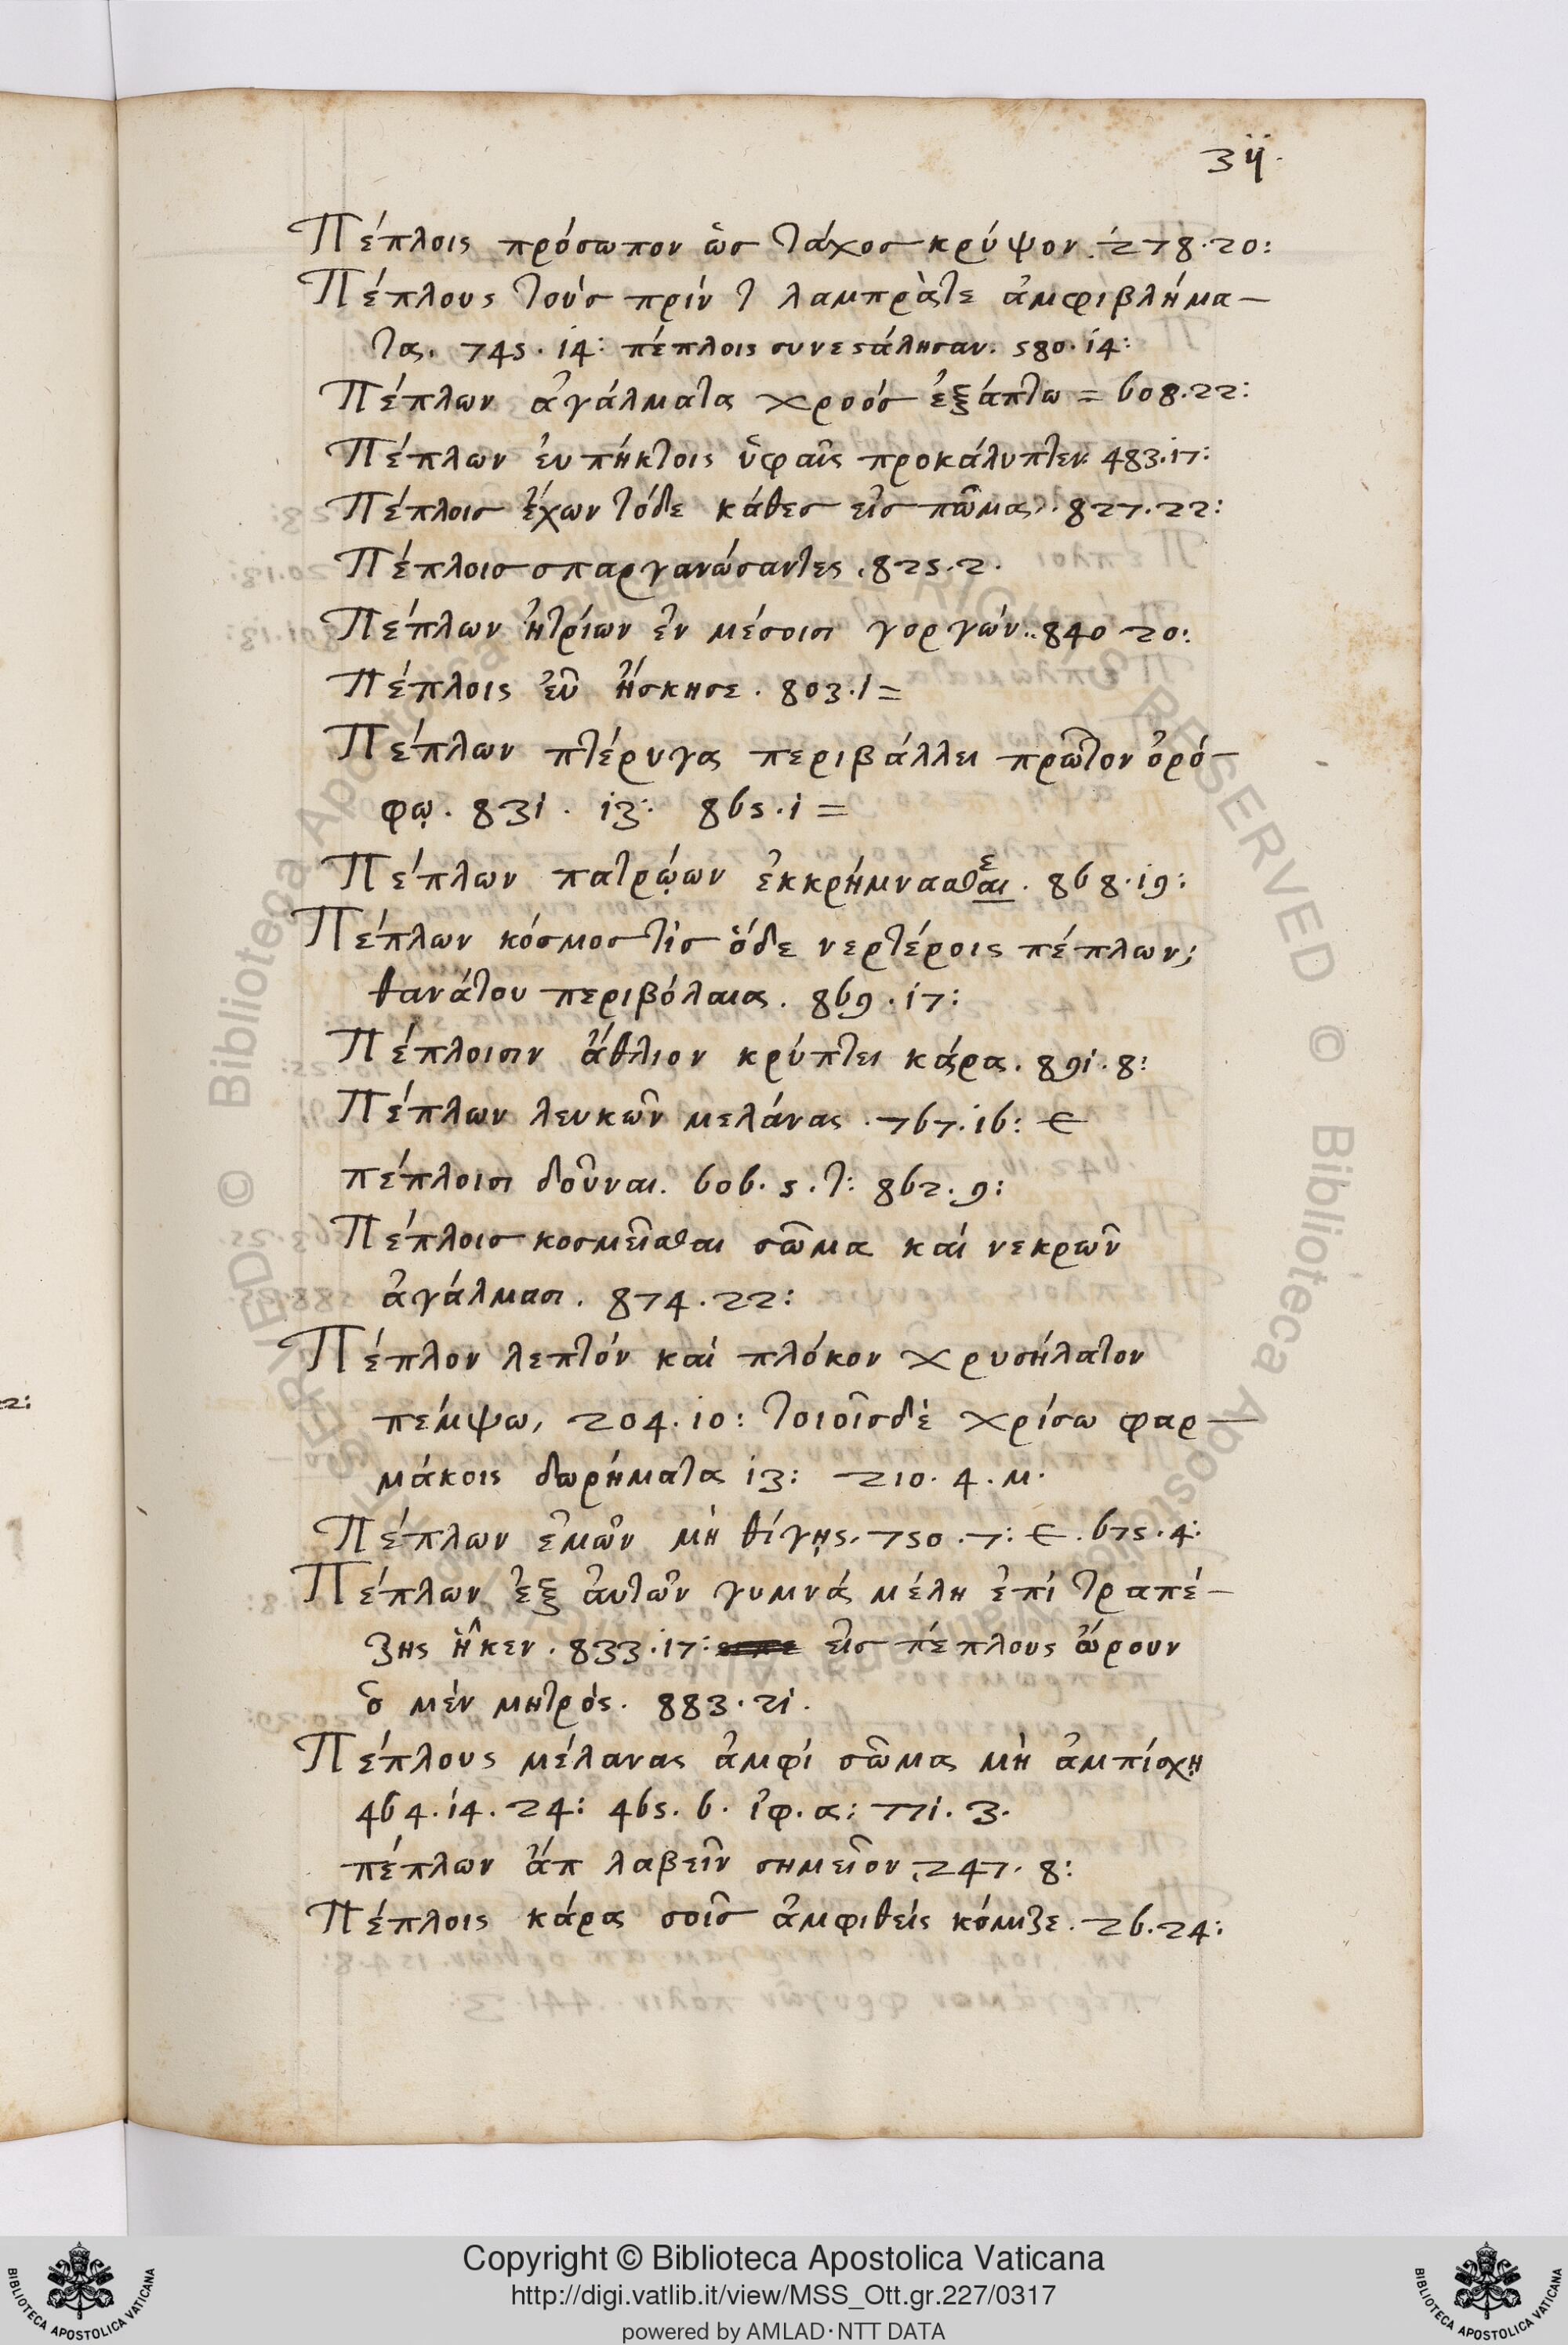 311.
Πέπλοις πρόσωπον ὡς τάχος κρύψον. 278.20:
Πέπλους τούς πρίν τ λαμπρὰτε ἀμφιβλήμα-
τα. 745.14: πέπλοις συνεϛάλησαν. 580.14:
Πέπλων ἀγάλματα χροός ἐξάπτω = 608.22:
Πέπλων ἐυπήκτοις ὑφαῖς προκάλυπτεν. 483.17:
Πέπλοις ἔχων τόδε κάθες εἰς πῶμα. 827.22:
Πέπλοις σπαργανώσαντες. 825.2.
Πέπλων ἠτρίων ἐν μέσοισι γοργών.. 840 20:
Πέπλοις ἐῦ ἤσκησε. 803.1=
Πέπλων πτέρυγα περιβάλλει πρῶτον ὀρό-
φῳ. 831. 13: 865.1=
Πέπλων πατρῴων ἐκκρήμνασθαι. 868.19:
Πέπλων κόσμος τίς ὅδε νερτέροις πέπλων;
θανάτου περιβόλαια. 869.17:
Πέπλοισιν ἄθλιον κρύπτει κάρα. 891.8:
Πέπλων λευκῶν μελάνας. 767.16: Є
πέπλοισι δοῦναι. 606.5.τ: 862.9:
Πέπλοις κοσμεῖσθαι σῶμα καί νεκρῶν
ἀγάλμασι. 874.22:
Πέπλον λεπτόν καί πλόκον χρυσήλατον
πέμψω, 204.10: τοιοῖσδὲ χρίσω φαρ-
μάκοις δωρήματα 13: 210.4.μ.
Πέπλων ἐμῶν μὴ θίγῃς. 750.7: Є. 675.4:
Πέπλων ἐξ ἀυτῶν γυμνά μέλη ἐπί τραπέ-
ζης ἧκεν. 833.17: εἰς πέπλους ὤρουν
ὃ μέν μητρός. 883.21.
Πέπλους μέλανας ἀμφί σῶμα μὴ ἀμπίσχῃ
464.14.24: 465.6. ἰφ.α: 771.3.
πέπλων ἄπ λαβεῖν σημεῖον, 247.8:
Πέπλοις κάρα σοῖς ἀμφιθείς κόμιζε. 26.24:
2:
© Biblioteca Apostolica Vaticana ALL RIGHTS RESERVED
© Biblioteca Apostolica Vaticana ALL RIGHTS RESERVED
Copyright © Biblioteca Apostolica Vaticana
http://digi.vatlib.it/view/MSS_Ott.gr.227/0317
powered by AMLAD·NTT DATA
BIBLIOTECA APOSTOLICA VATICANA
BIBLIOTECA APOSTOLICA VATICANA